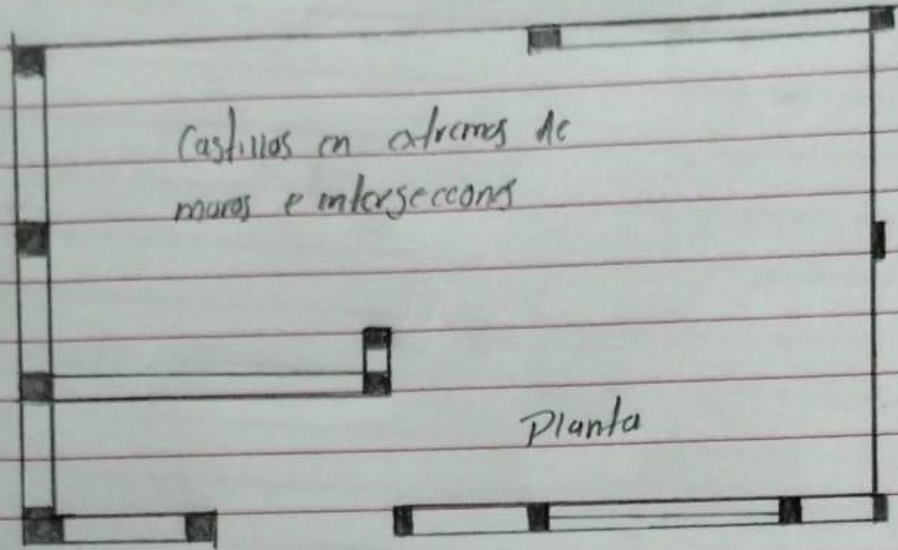 Castillos en extremos de
muros e intersecciones
Planta